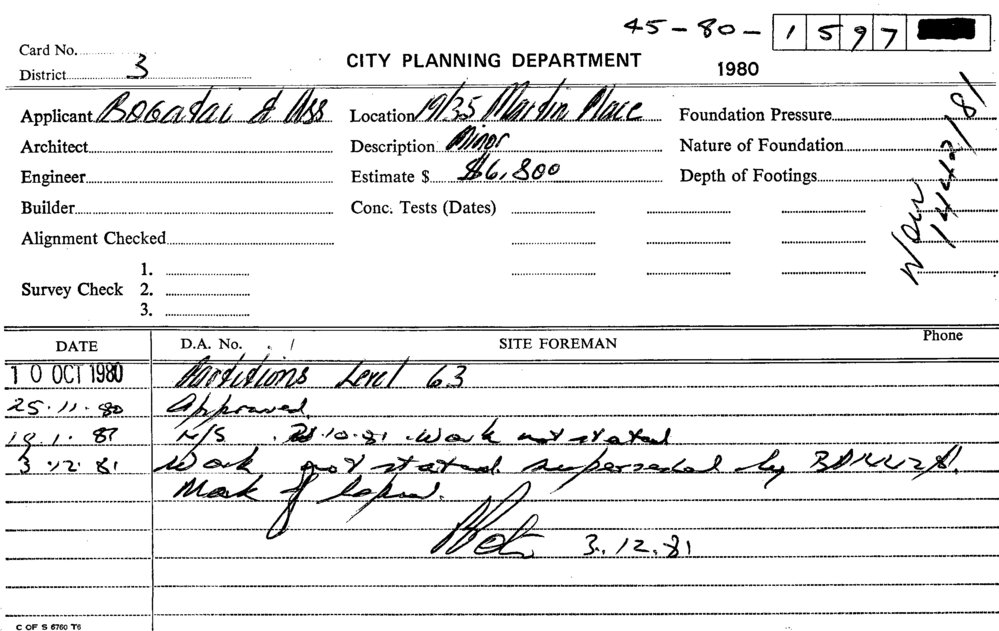 45-80-1597
Card No.
District 3
CITY PLANNING DEPARTMENT
1980
Applicant Bogatai & Ass Location 19/35 Martin Place Foundation Pressure
Architect Description Minor Nature of Foundation
Engineer Estimate $ $6,800 Depth of Footings
Builder Conc. Tests (Dates)
Alignment Checked
1.
Survey Check 2.
3.
/81
DATE D.A. No. SITE FOREMAN Phone
10 OCT 1980 Partitions Level 63
25.11.80 Approved.
1. 81 N/S 10.81. Work not stated
3.12.81 Work not stated superseded by
Mark off lapsed.
3.12.81
C OF S 6760 T6